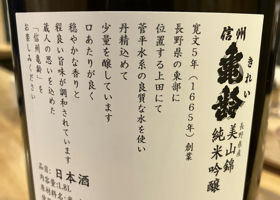 信州
亀齢
きれい
長野県産
美山錦
純米吟醸
寛文5年(1665年)創業
長野県の東部に
位置する上田にて
菅平水系の良質な水を使い
丹精込めて
少量を醸しています
口あたりが良く
穏やかな香りと
程良い旨味が調和されています
蔵人の思いを込めた
「信州亀齢」を
お楽しみください
品目:日本酒
内容量:1.8L